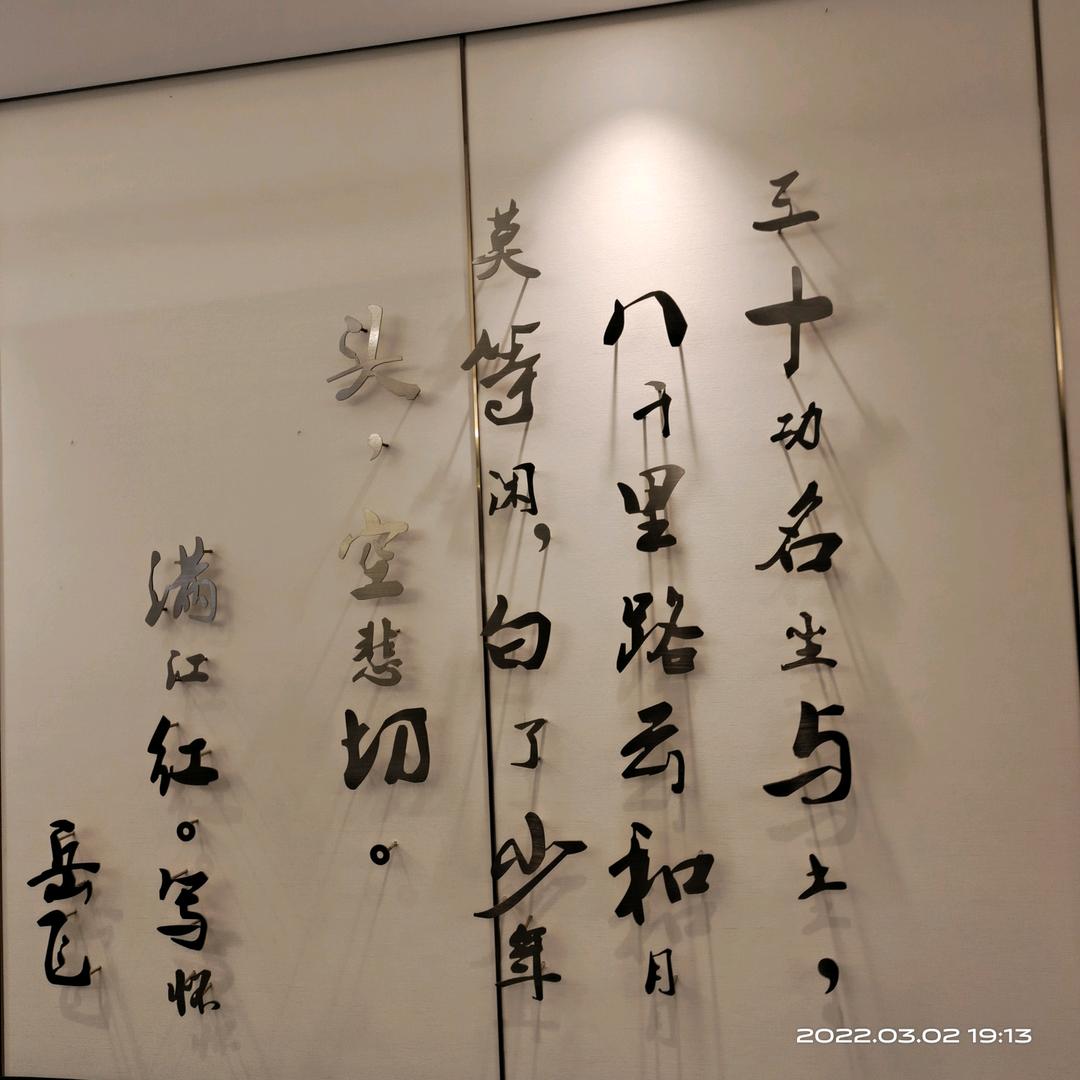 三十功名尘与土，
八千里路云和月
莫等闲，白了少年
头，空悲切。
满江红。写怀
岳飞
2022.03.02 19:13